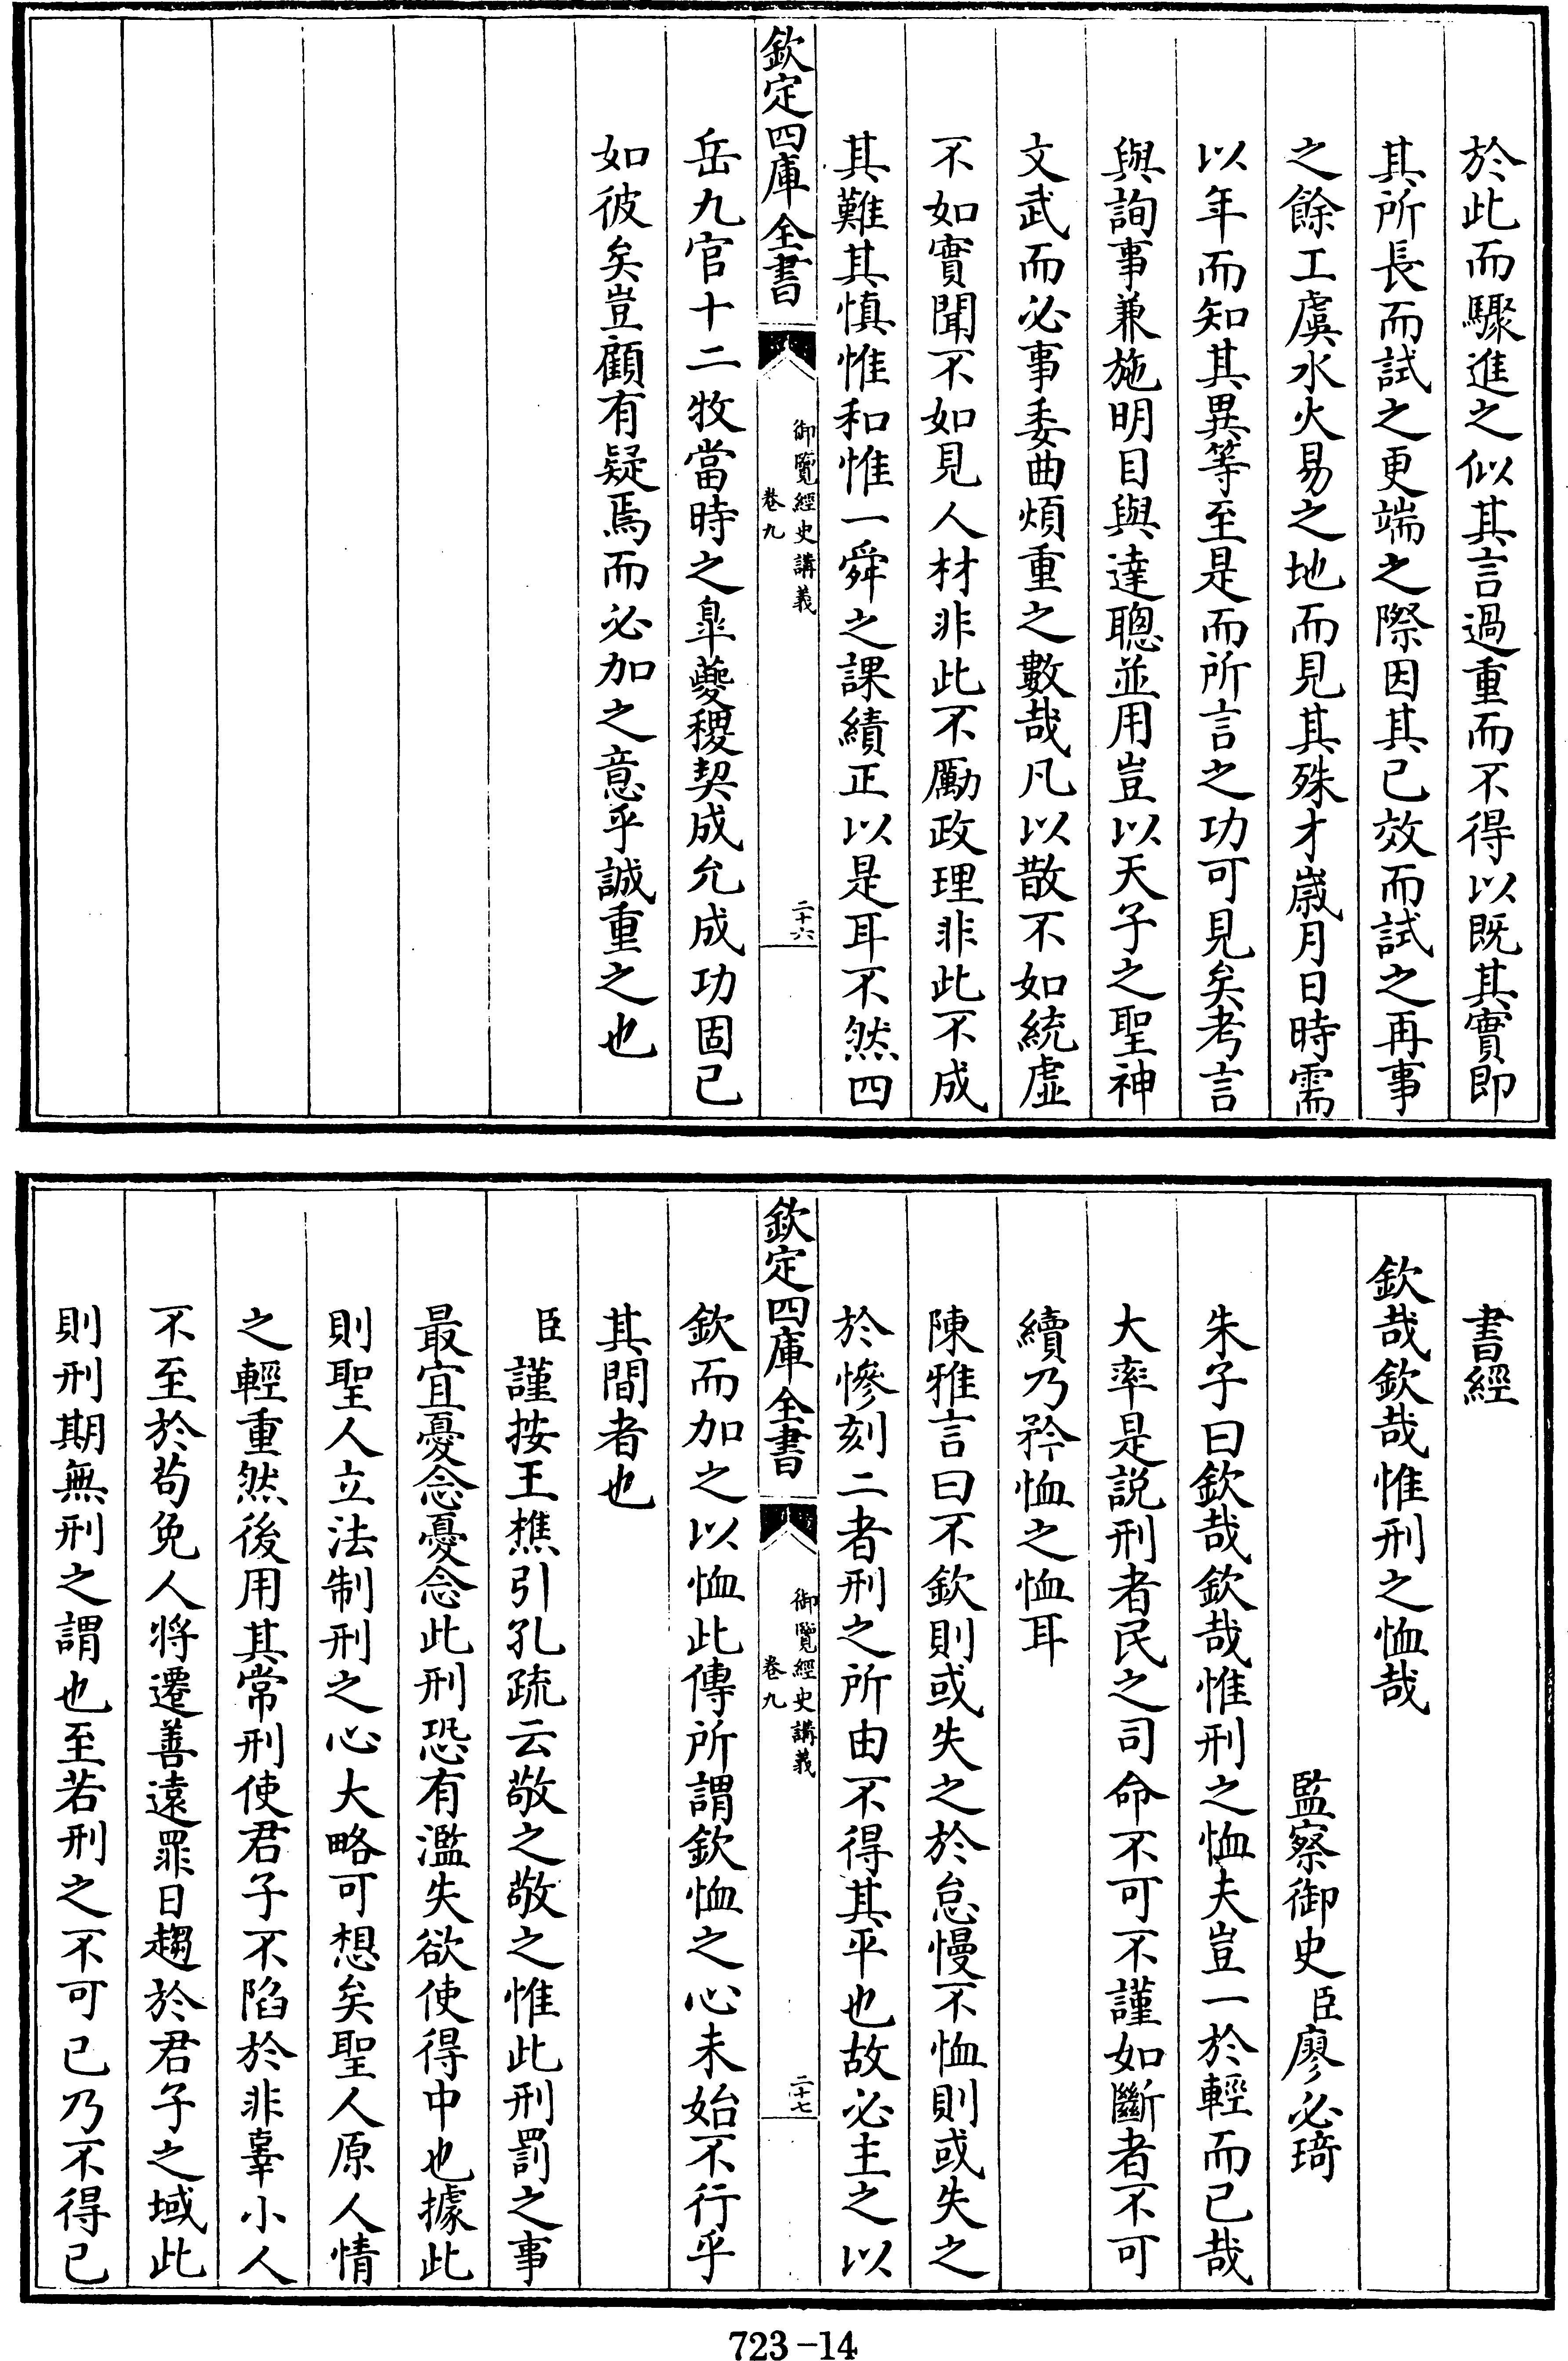 於此而驟進之似其言過重而不得以既其實即
其所長而試之更端之際因其已效而試之再事
之餘工虞水火易之地而見其殊才嵗月日時需
以年而知其異等至是而所言之功可見矣考言
與詢事兼施明目與達聰並用豈以天子之聖神
文武而必事委曲煩重之數哉凡以散不如統虛
不如實聞不如見人材非此不勵政理非此不成
其難其慎惟和惟一舜之課績正以是耳不然四
欽定四庫全書
御覽經史講義
卷九
二十六
岳九官十二牧當時之臯夔稷契成允成功固已
如彼矣豈顧有疑焉而必加之意乎誠重之也
書經
欽哉欽哉惟刑之恤哉
監察御史臣廖必琦
朱子曰欽哉欽哉惟刑之恤夫豈一於輕而已哉
大率是説刑者民之司命不可不謹如斷者不可
續乃矜恤之恤耳
陳雅言曰不欽則或失之於怠慢不恤則或失之
於慘刻二者刑之所由不得其平也故必主之以
欽定四庫全書
御覽經史講義
卷九
二十七
欽而加之以恤此傳所謂欽恤之心未始不行乎
其間者也
臣謹按王樵引孔疏云敬之敬之惟此刑罰之事
最宜憂念憂念此刑恐有濫失欲使得中也據此
則聖人立法制刑之心大略可想矣聖人原人情
之輕重然後用其常刑使君子不陷於非辜小人
不至於苟免人將遷善遠罪日趨於君子之域此
則刑期無刑之謂也至若刑之不可已乃不得已
723-14